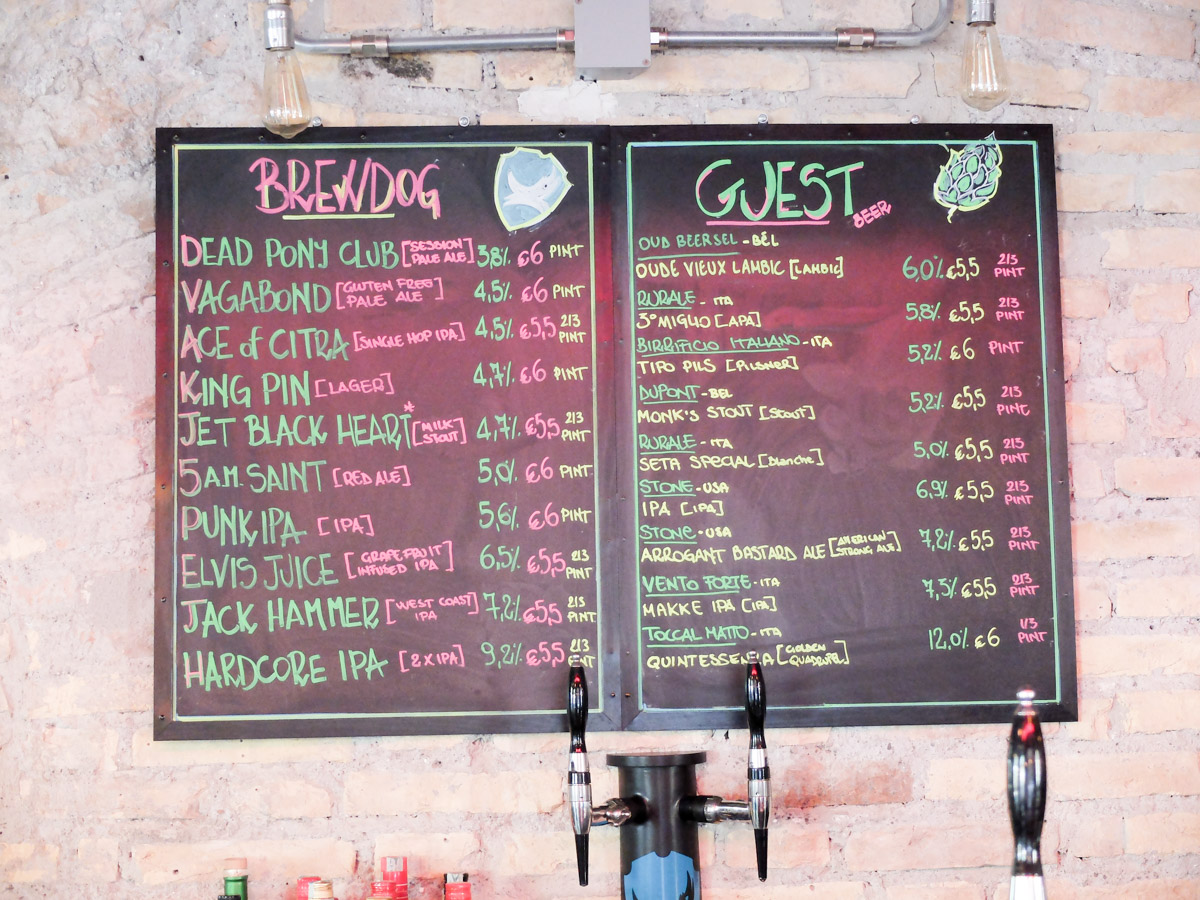 BREWDOG
DEAD PONY CLUB [SESSION PALE ALE] 3,8% €6 PINT
VAGABOND [GLUTEN FREE PALE ALE] 4,5% €6 PINT
ACE of CITRA [SINGLE HOP IPA] 4,5% €5,5 2/3 PINT
KING PIN [LAGER] 4,7% €6 PINT
JET BLACK HEART* [MILK STOUT] 4,7% €5,5 2/3 PINT
5 A.M. SAINT [RED ALE] 5,0% €6 PINT
PUNK IPA [IPA] 5,6% €6 PINT
ELVIS JUICE [GRAPEFRUIT INFUSED IPA] 6,5% €5,5 2/3 PINT
JACK HAMMER [WEST COAST IPA] 7,2% €5,5 2/3 PINT
HARDCORE IPA [2 X IPA] 9,2% €5,5 2/3
GUEST BEER
OUD BEERSEL - BEL
OUDE VIEUX LAMBIC [LAMBIC] 6,0% €5,5 2/3 PINT
RURALE - ITA
3° MIGLIO [APA] 5,8% €5,5 2/3 PINT
BIRRIFICIO ITALIANO - ITA
TIPO PILS [PILSNER] 5,2% €6 PINT
DUPONT - BEL
MONK'S STOUT [STOUT] 5,2% €5,5 2/3 PINT
RURALE - ITA
SETA SPECIAL [Blanche] 5,0% €5,5 2/3 PINT
STONE - USA
IPA [IPA] 6,9% €5,5 2/3 PINT
STONE - USA
ARROGANT BASTARD ALE [AMERICAN STRONG ALE] 7,2% €5,5 2/3 PINT
VENTO FORTE - ITA
MAKKE IPA [IPA] 7,5% €5,5 2/3 PINT
TOCCAL MATTO - ITA
QUINTESSENZA [GOLDEN QUADRUPEL] 12,0% €6 1/3 PINT